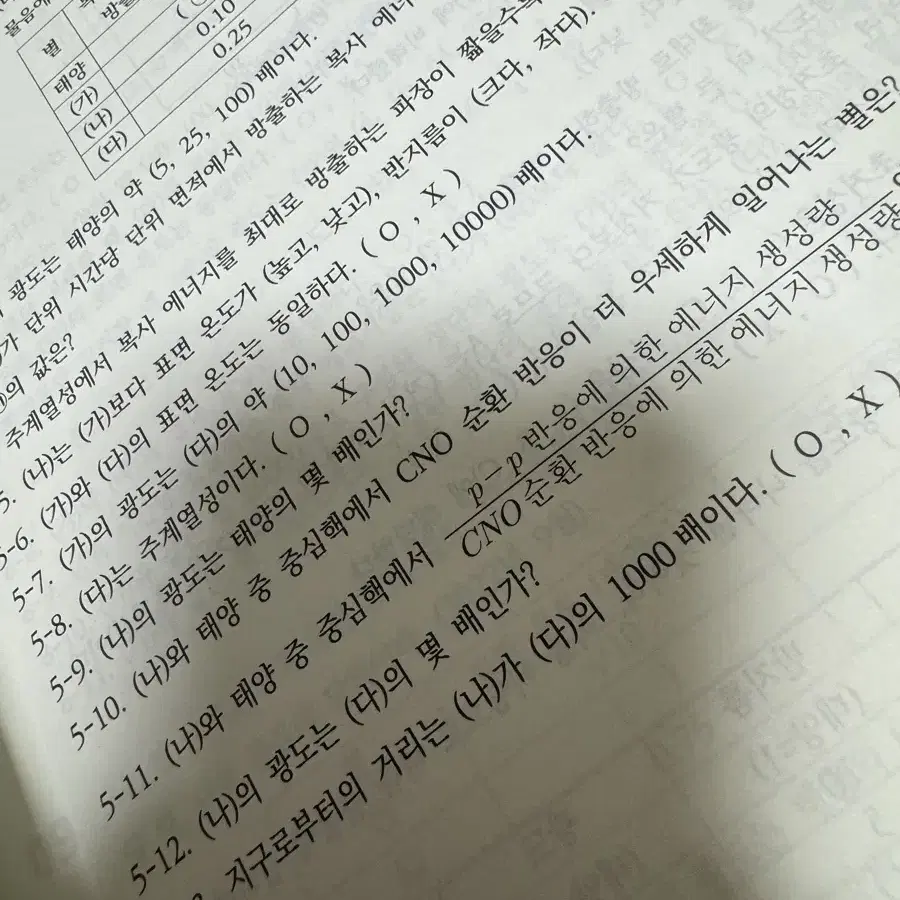 물음에
별
태양
(가) 0.10
(나) 0.25
(다)
광도는 태양의 약 (5, 25, 100)배이다.
가 단위 시간당 단위 면적에서 방출하는 복사 에너
의 값은?
주계열성에서 복사 에너지를 최대로 방출하는 파장이 짧을수록
5. (나)는 (가)보다 표면 온도가 (높고, 낮고), 반지름이 (크다, 작다).
5-6. (가)와 (다)의 표면 온도는 동일하다. ( O , X )
5-7. (가)의 광도는 (다)의 약 (10, 100, 1000, 10000)배이다.
5-8. (다)는 주계열성이다. ( O , X )
5-9. (나)의 광도는 태양의 몇 배인가?
5-10. (나)와 태양 중 중심핵에서 CNO 순환 반응이 더 우세하게 일어나는 별은?
5-11. (나)와 태양 중 중심핵에서 p-p 반응에 의한 에너지 생성량
CNO 순환 반응에 의한 에너지 생성량
5-12. (나)의 광도는 (다)의 몇 배인가?
지구로부터의 거리는 (나)가 (다)의 1000배이다. ( O , X )